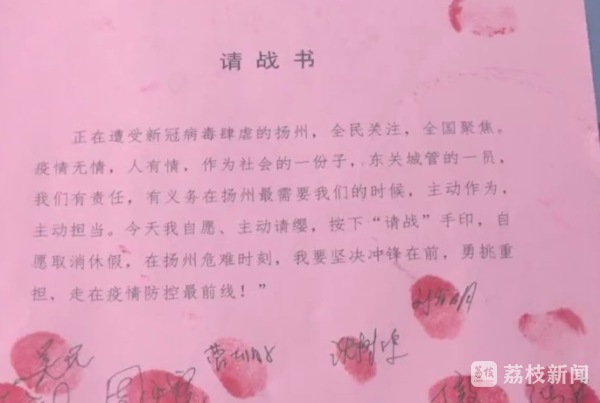 请战书
正在遭受新冠病毒肆虐的扬州，全民关注，全国聚焦。
疫情无情，人有情，作为社会的一份子，东关城管的一员，
我们有责任，有义务在扬州最需要我们的时候，主动作为，
主动担当。今天我自愿、主动请缨，按下“请战”手印，自
愿取消休假，在扬州危难时刻，我要坚决冲锋在前，勇挑重
担，走在疫情防控最前线！”
荔枝新闻